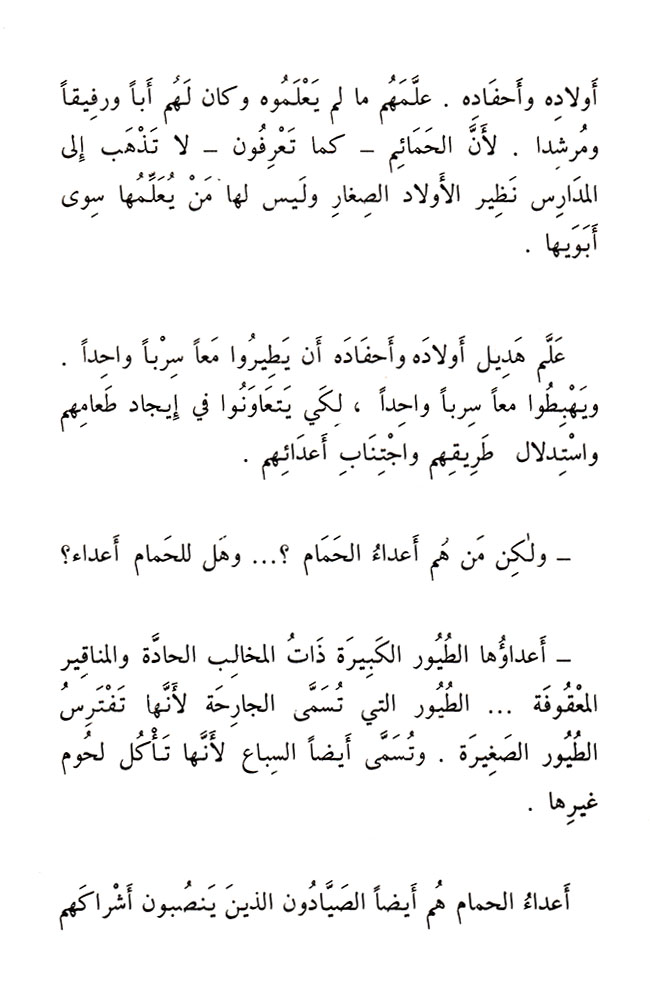 أَولادِه وأَحفَادِه . علَّمَهُم ما لم يَعْلَمُوه وكان لَهُم أَباً ورفِيقاً
ومُرشِدا . لأَنَّ الحَمَائِم – كما تَعْرِفُون – لا تَذْهَب إِلى
المدَارِس نَظِير الأَولاد الصِغارِ ولَيس لها مَنْ يُعَلِّمُها سِوى
أَبَوَيها .
عَلَّم هَدِيل أَولادَه وأَحفَادَه أَن يَطِيرُوا مَعاً سِرْباً واحِداً .
ويَهْبِطُوا معاً سِرباً واحِداً ، لِكَي يَتعَاوَنُوا في إِيجاد طَعامِهم
واسْتِدلال طَرِيقِهم واجْتِنَابِ أَعدَائِهم .
– ولٰكِن مَن هُم أَعداءُ الحَمَام ؟... وهَل للحَمام أَعداء؟
– أَعداؤُها الطُيُور الكَبِيرَة ذَاتُ المخالِب الحادَّة والمناقِير
المعْقُوفَة ... الطُيُور التي تُسَمَّى الجارِحَة لأَنَّها تَفْتَرِسُ
الطُيُور الصَغِيرَة . وتُسَمَّى أَيضاً السِباع لأَنَّها تَأْكُل لحُوم
غيرِها .
أَعداءُ الحمام هُم أَيضاً الصَيَّادُون الذينَ يَنصُبون أَشْراكَهم